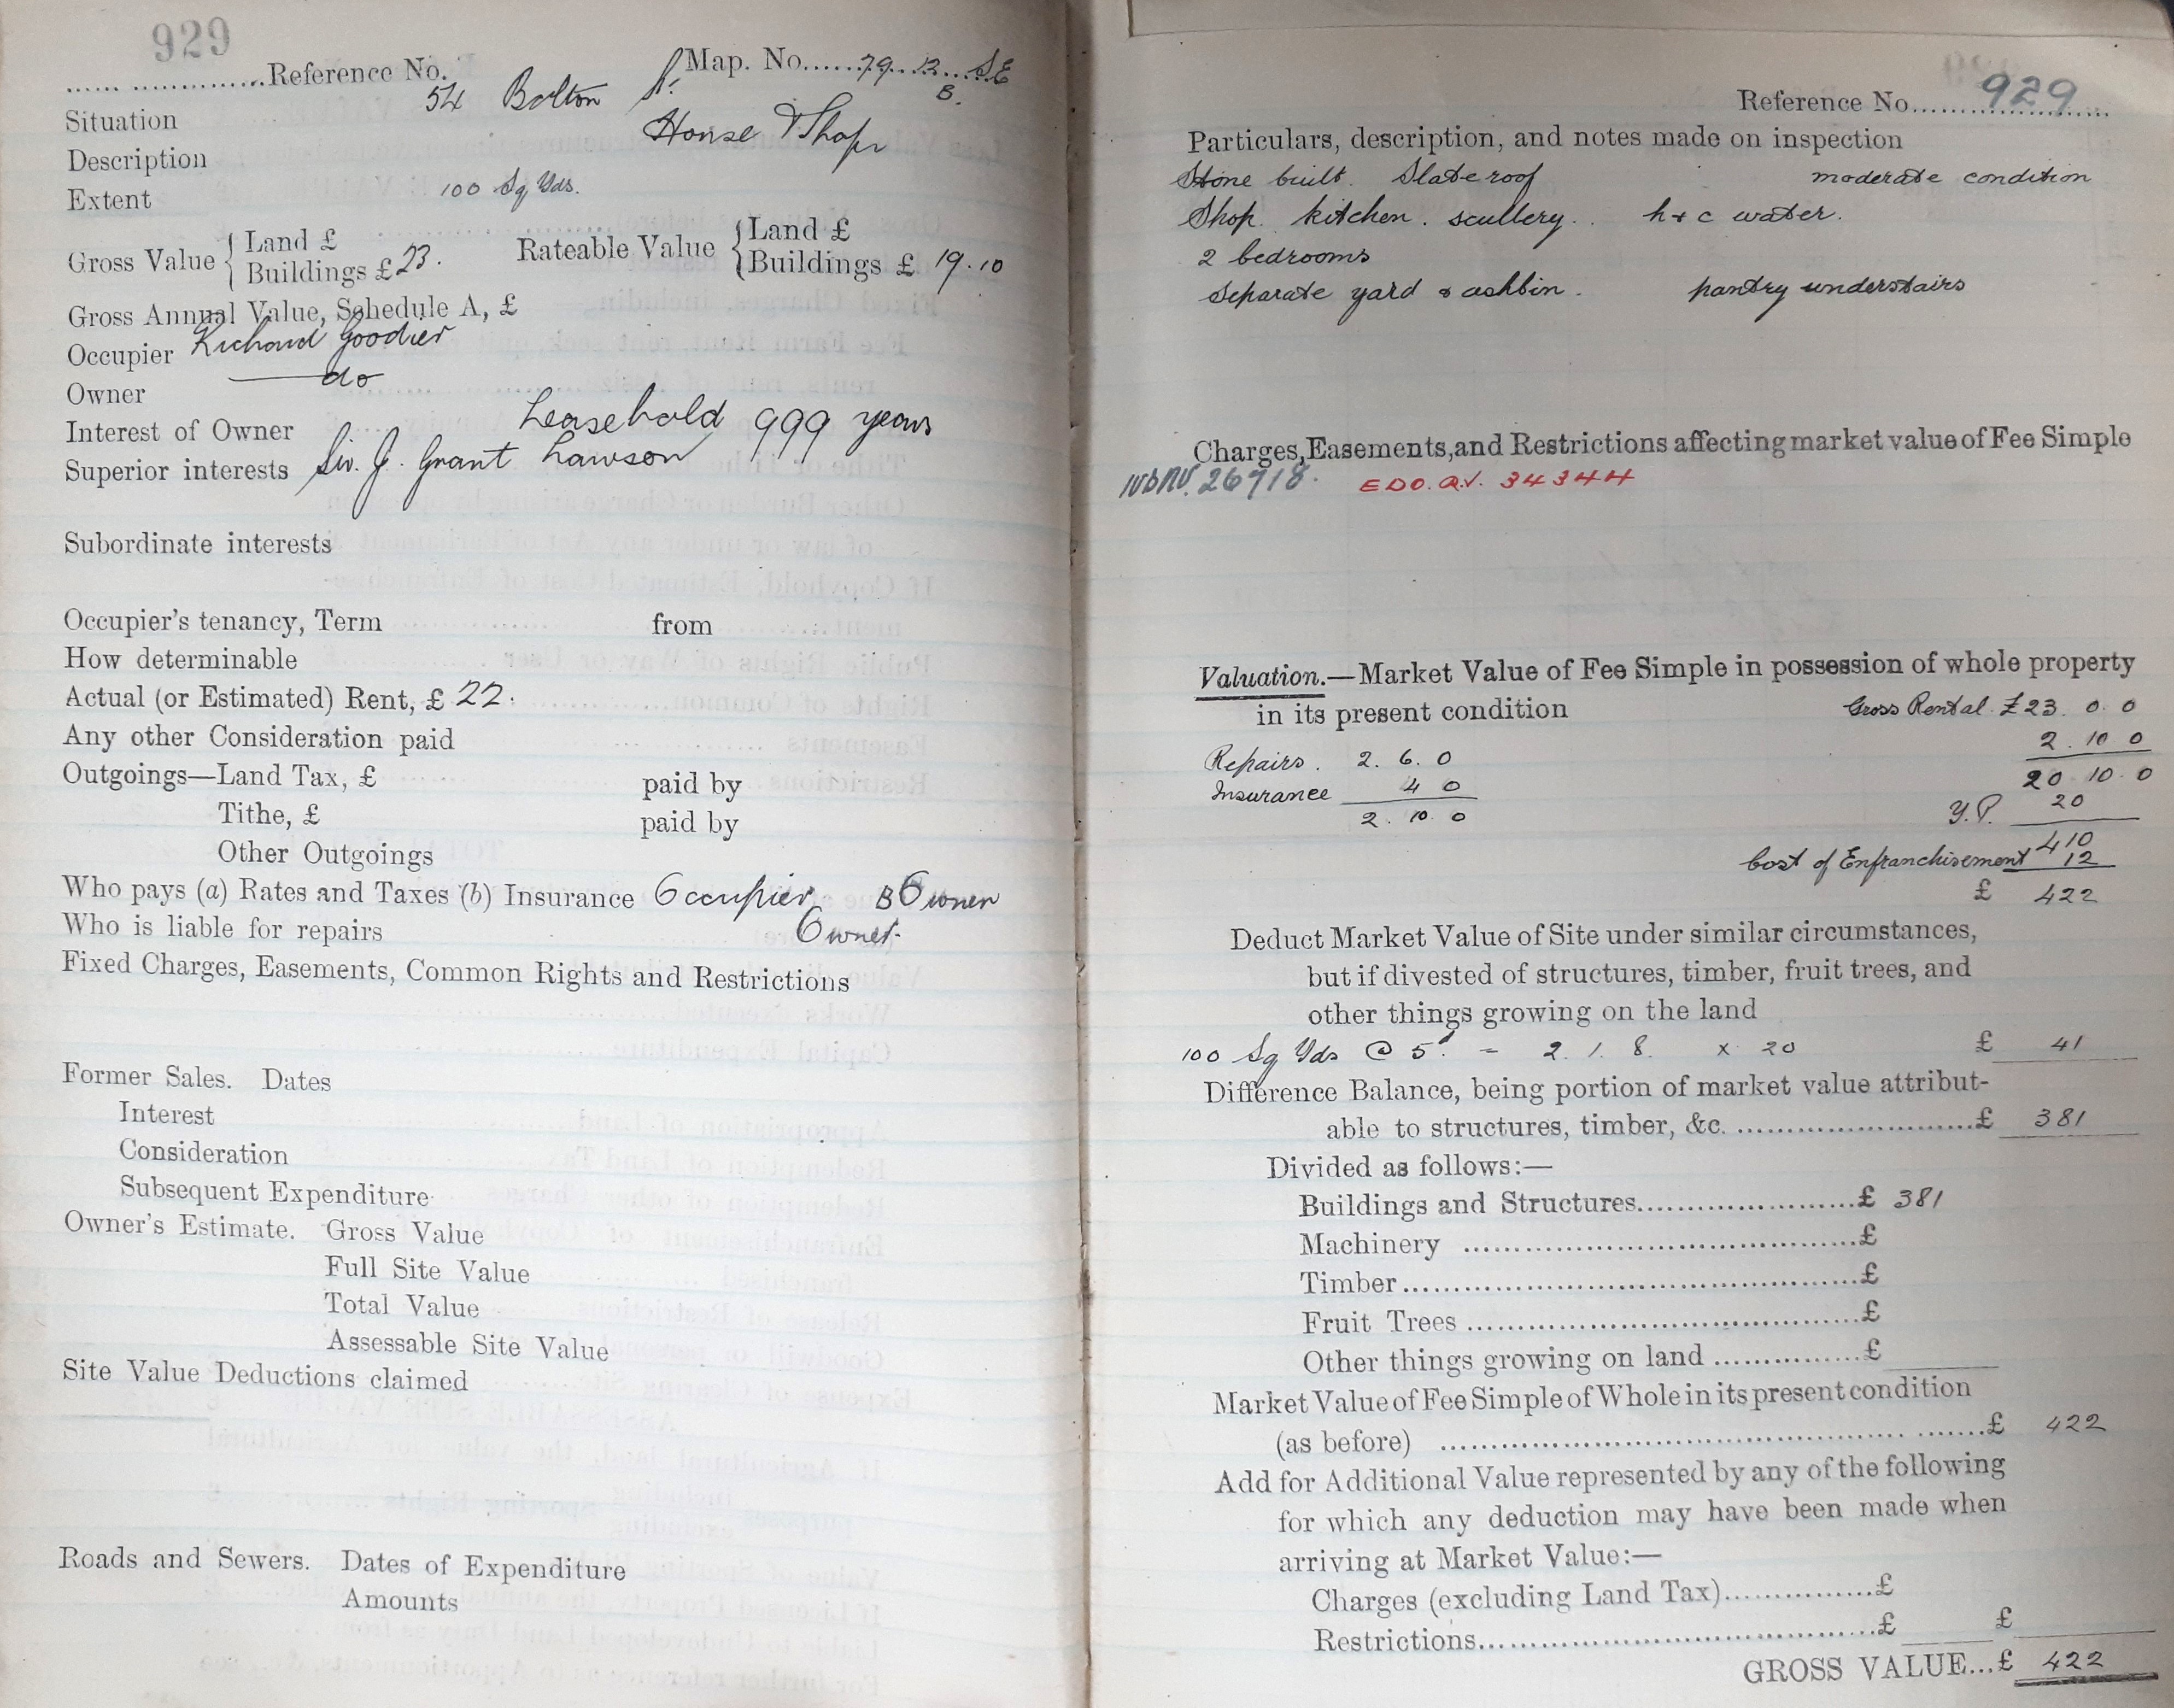 929
Reference No. Map. No. 79. 12. SE
B.
Situation 54 Bolton St.
Description House & Shop
Extent 100 Sq Yds.
Gross Value { Land £
Buildings £ 23.
Rateable Value { Land £
Buildings £ 19.10
Gross Annual Value, Schedule A, £
Occupier Richard Goodier
Owner do
Interest of Owner Leasehold 999 years
Superior interests Sir. J. Grant Lawson
Subordinate interests
Occupier's tenancy, Term from
How determinable
Actual (or Estimated) Rent, £ 22.
Any other Consideration paid
Outgoings—Land Tax, £ paid by
Tithe, £ paid by
Other Outgoings
Who pays (a) Rates and Taxes (b) Insurance Occupier B Owner
Who is liable for repairs Owner.
Fixed Charges, Easements, Common Rights and Restrictions
Former Sales. Dates
Interest
Consideration
Subsequent Expenditure
Owner's Estimate. Gross Value
Full Site Value
Total Value
Assessable Site Value
Site Value Deductions claimed
Roads and Sewers. Dates of Expenditure
Amounts
Reference No. 929
Particulars, description, and notes made on inspection
Stone built. Slate roof moderate condition
Shop. kitchen. scullery. h + c water.
2 bedrooms
Separate yard & ashbin. pantry understairs
Charges, Easements, and Restrictions affecting market value of Fee Simple
26718. EDO. Q.V. 34344
Valuation.—Market Value of Fee Simple in possession of whole property
in its present condition Gross Rental £23. 0. 0
2. 10 0
Repairs. 2. 6. 0
20 10. 0
Insurance 4 0
Y.P. 20
2. 10. 0
410
Cost of Enfranchisement 12
£ 422
Deduct Market Value of Site under similar circumstances,
but if divested of structures, timber, fruit trees, and
other things growing on the land
100 Sq Yds @ 5d = 2. 1. 8. x 20 £ 41
Difference Balance, being portion of market value attribut-
able to structures, timber, &c. £ 381
Divided as follows:—
Buildings and Structures £ 381
Machinery £
Timber £
Fruit Trees £
Other things growing on land £
Market Value of Fee Simple of Whole in its present condition
(as before) £ 422
Add for Additional Value represented by any of the following
for which any deduction may have been made when
arriving at Market Value:—
Charges (excluding Land Tax) £
Restrictions £ £
GROSS VALUE...£ 422